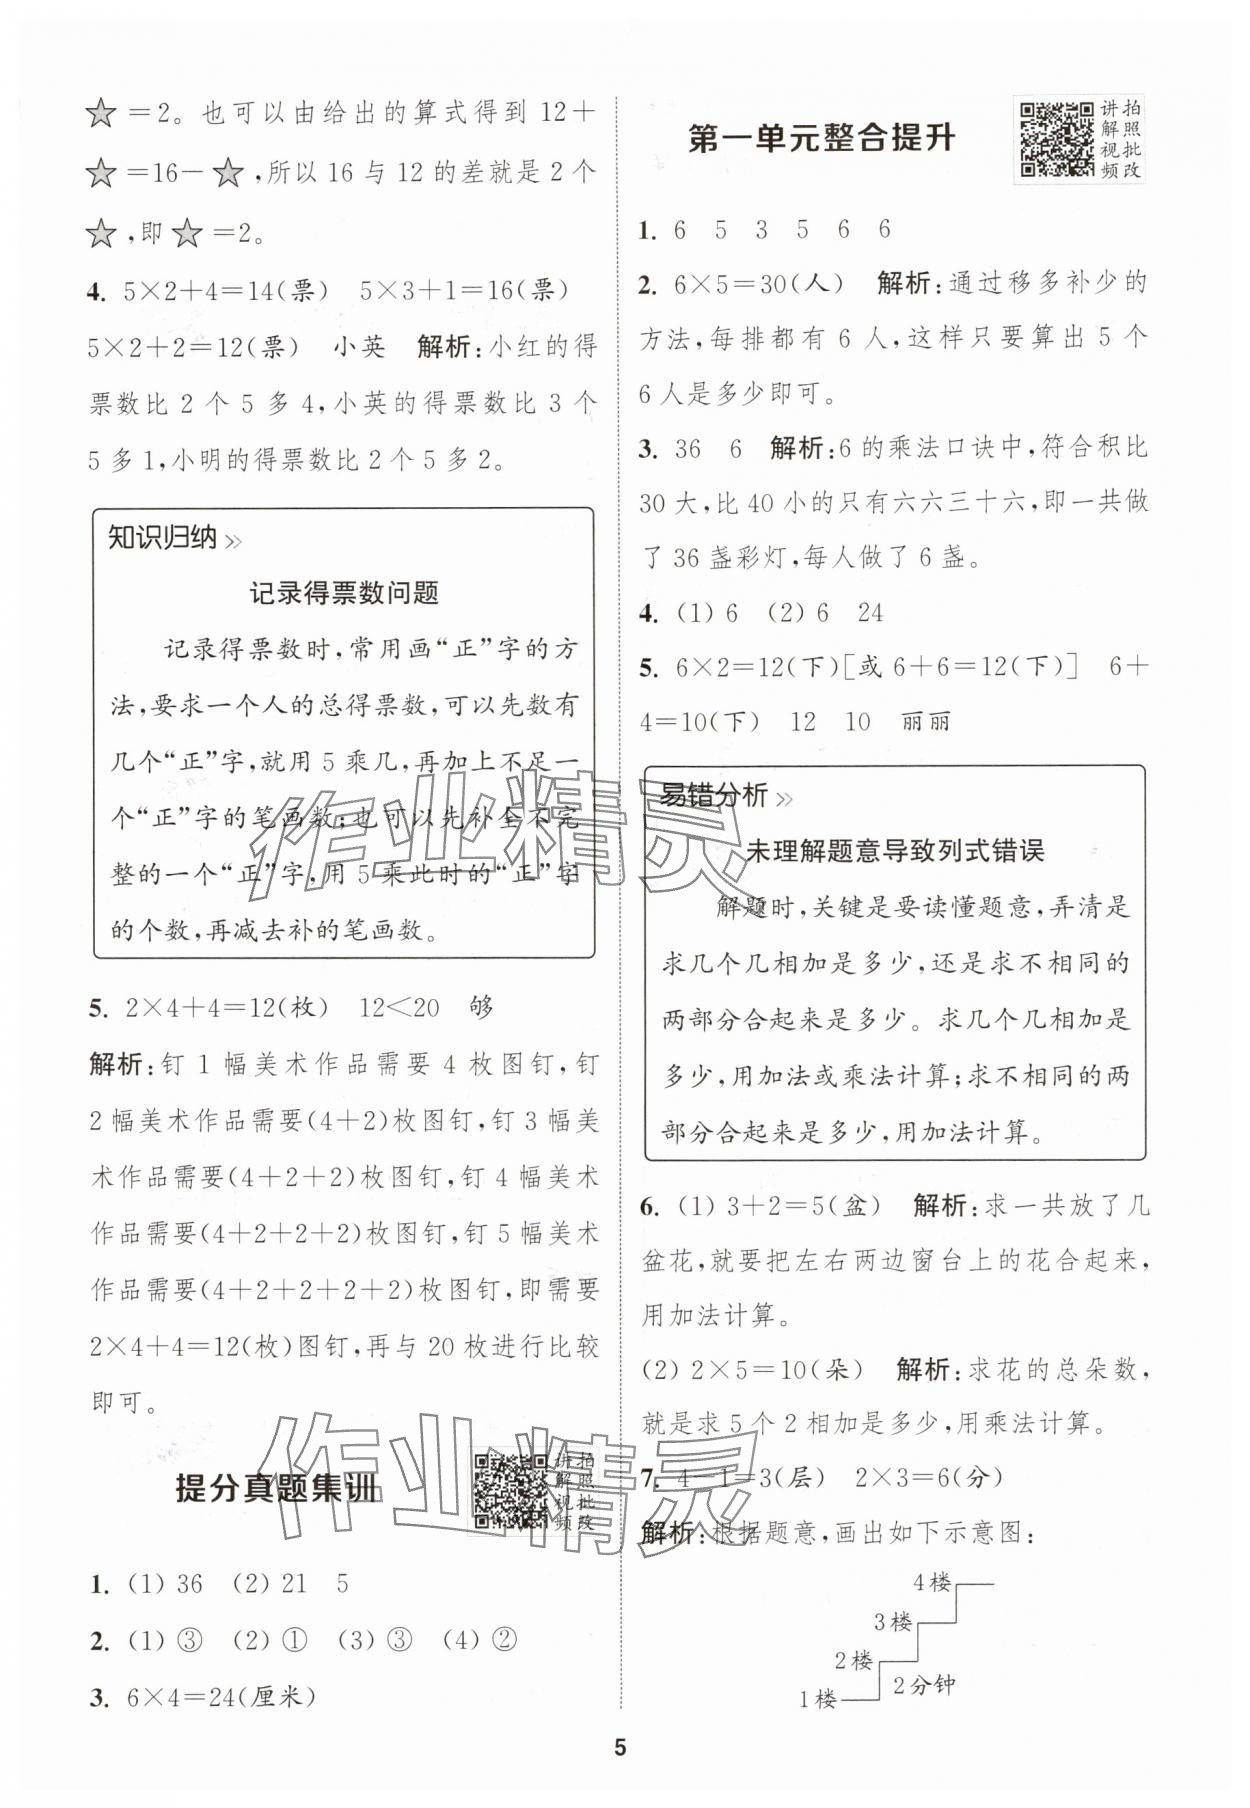 ☆=2。也可以由给出的算式得到 12+
☆=16-☆,所以 16 与 12 的差就是 2 个
☆,即☆=2。
4. 5×2+4=14(票) 5×3+1=16(票)
5×2+2=12(票) 小英 解析:小红的得
票数比 2 个 5 多 4,小英的得票数比 3 个
5 多 1,小明的得票数比 2 个 5 多 2。
知识归纳 »
记录得票数问题
记录得票数时,常用画“正”字的方
法,要求一个人的总得票数,可以先数有
几个“正”字,就用 5 乘几,再加上不足一
个“正”字的笔画数;也可以先补全不完
整的一个“正”字,用 5 乘此时的“正”字
的个数,再减去补的笔画数。
5. 2×4+4=12(枚) 12<20 够
解析:钉 1 幅美术作品需要 4 枚图钉,钉
2 幅美术作品需要(4+2)枚图钉,钉 3 幅美
术作品需要(4+2+2)枚图钉,钉 4 幅美术
作品需要(4+2+2+2)枚图钉,钉 5 幅美术
作品需要(4+2+2+2+2)枚图钉,即需要
2×4+4=12(枚)图钉,再与 20 枚进行比较
即可。
提分真题集训
讲解视频
拍照批改
1. (1) 36 (2) 21 5
2. (1) ③ (2) ① (3) ③ (4) ②
3. 6×4=24(厘米)
第一单元整合提升
讲解视频
拍照批改
1. 6 5 3 5 6 6
2. 6×5=30(人) 解析:通过移多补少的
方法,每排都有 6 人,这样只要算出 5 个
6 人是多少即可。
3. 36 6 解析:6 的乘法口诀中,符合积比
30 大,比 40 小的只有六六三十六,即一共做
了 36 盏彩灯,每人做了 6 盏。
4. (1) 6 (2) 6 24
5. 6×2=12(下)[或 6+6=12(下)] 6+
4=10(下) 12 10 丽丽
易错分析 »
未理解题意导致列式错误
解题时,关键是要读懂题意,弄清是
求几个几相加是多少,还是求不相同的
两部分合起来是多少。求几个几相加是
多少,用加法或乘法计算;求不相同的两
部分合起来是多少,用加法计算。
6. (1) 3+2=5(盆) 解析:求一共放了几
盆花,就要把左右两边窗台上的花合起来,
用加法计算。
(2) 2×5=10(朵) 解析:求花的总朵数,
就是求 5 个 2 相加是多少,用乘法计算。
7. 4-1=3(层) 2×3=6(分)
解析:根据题意,画出如下示意图:
4 楼
3 楼
2 楼
2 分钟
1 楼
5
作业精灵
作业精灵